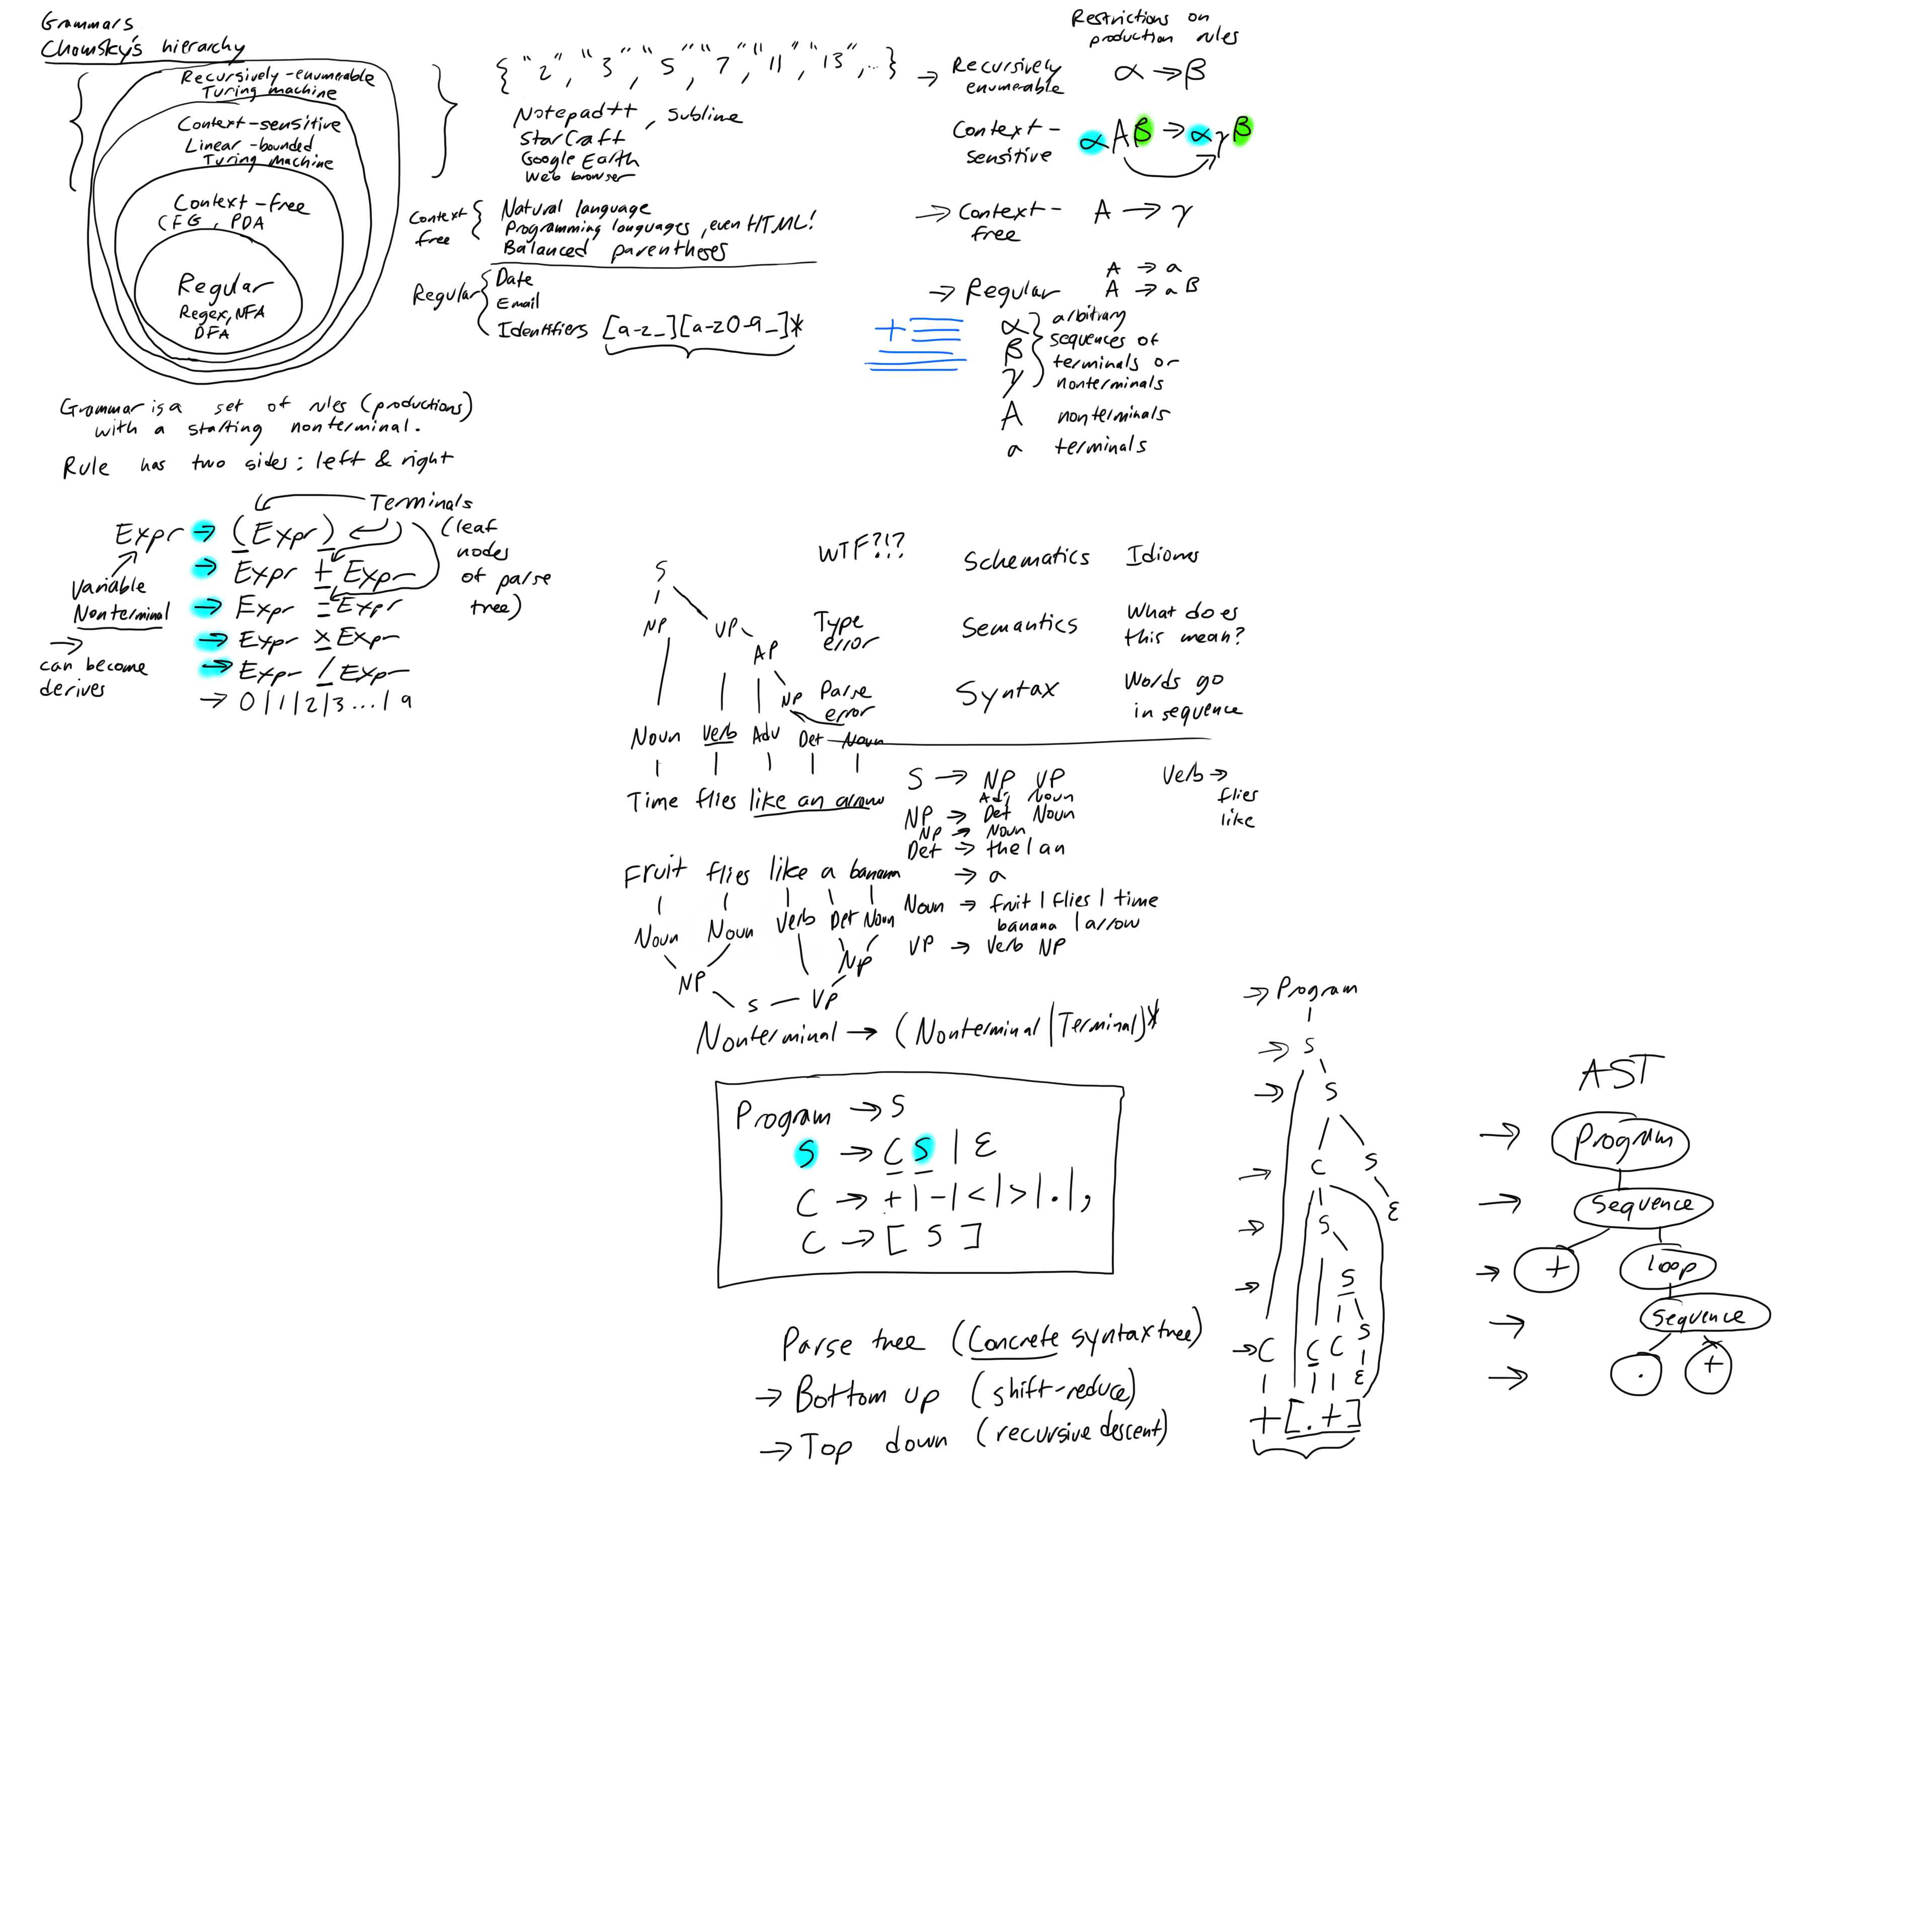 Grammars
Chomsky's hierarchy
Recursively-enumerable
Turing machine
Context-sensitive
Linear-bounded
Turing machine
Context-free
CFG, PDA
Regular
Regex, NFA
DFA
{ "2", "3", "5", "7", "11", "13", ... }
Notepad++, Sublime
StarCraft
Google Earth
Web browser
Context free { Natural language
Programming languages, even HTML!
Balanced parentheses
Regular { Date
Email
Identifiers [a-z_][a-z0-9_]*
Restrictions on
production rules
→ Recursively enumerable α → β
Context-sensitive αAβ → αγβ
→ Context-free A → γ
→ Regular A → a
A → aB
α β γ } arbitrary
sequences of
terminals or
nonterminals
A nonterminals
a terminals
Grammar is a set of rules (productions)
with a starting nonterminal.
Rule has two sides: left & right
Terminals
(leaf
nodes
of parse
tree)
Expr → (Expr)
→ Expr + Expr
→ Expr - Expr
→ Expr × Expr
→ Expr / Expr
→ 0|1|2|3...|9
Variable
Nonterminal
→
can become
derives
WTF?!? Schematics Idioms
Type error Semantics What does this mean?
Parse error Syntax Words go in sequence
S
NP VP
AP
NP
Noun Verb Adv Det Noun
Time flies like an arrow
Fruit flies like a banana
Noun Noun Verb Det Noun
NP
NP S VP
S → NP VP
Adj Noun
NP → Det Noun
NP → Noun
Det → the | an
→ a
Noun → fruit | flies | time
banana | arrow
VP → Verb NP
Verb →
flies
like
Nonterminal → (Nonterminal | Terminal)*
Program → S
S → C S | ε
C → + | - | < | > | . | ,
C → [ S ]
Parse tree (Concrete syntax tree)
→ Bottom up (shift-reduce)
→ Top down (recursive descent)
→ Program
→ S
→ S
→ C S
ε
→ S
→ S
→ C C C S
ε
+[.+]
AST
→ Program
→ Sequence
→ + loop
→ Sequence
→ . +